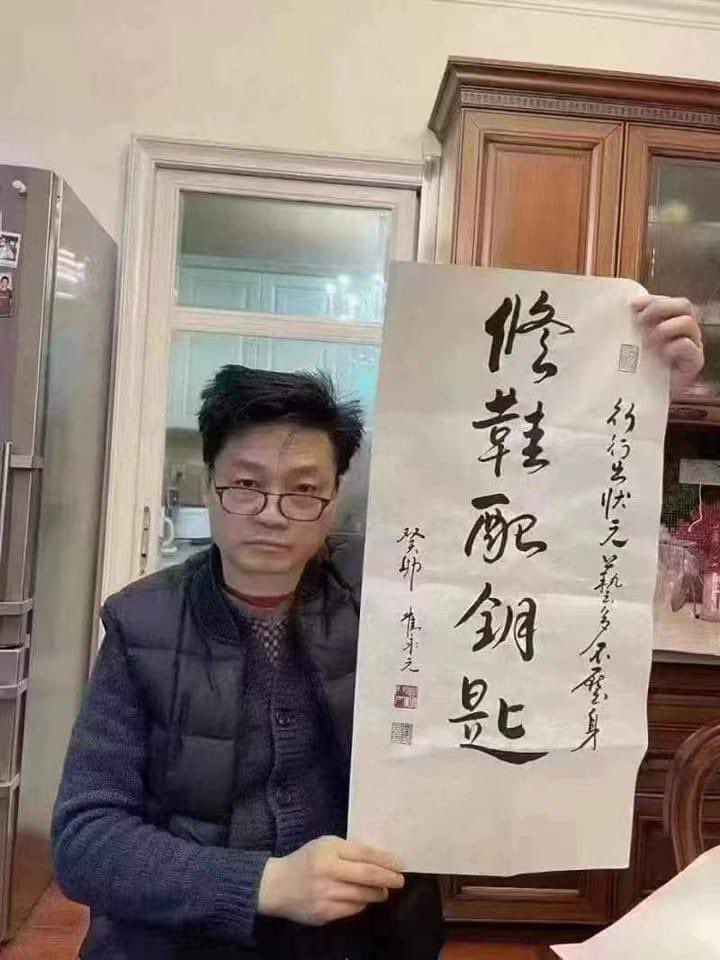 行行出状元藝多不壓身
修鞋配钥匙
癸卯 崔永元